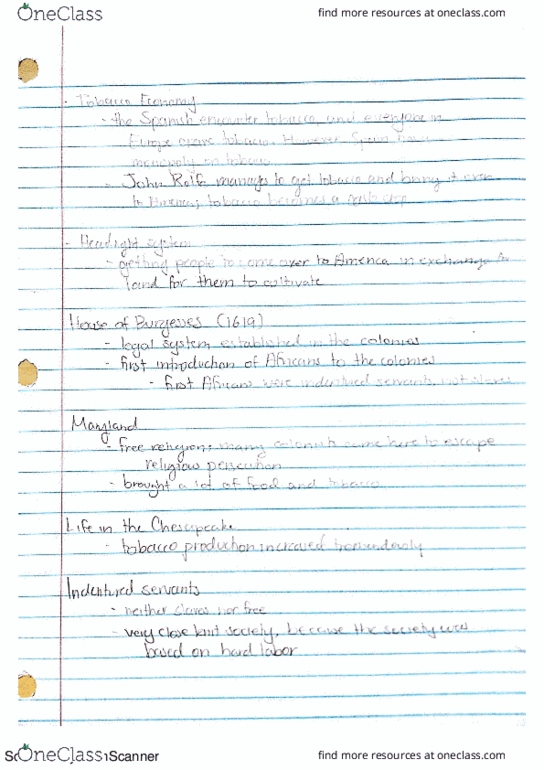 OneClass
find more resources at oneclass.com
- Tobacco Economy
- the Spanish encounter tobacco and everyone in
Europe crave tobacco. However Spain has a
monopoly on tobacco
- John Rolfe manages to get tobacco and bring it over
to America; tobacco becomes a cash crop
- Headright system
- getting people to come over to America in exchange for
land for them to cultivate
House of Burgesses (1619)
- legal system established in the colonies
- first introduction of Africans to the colonies
- first Africans were indentured servants not slaves
Maryland
- free religion; many colonists came here to escape
religious persecution
- brought a lot of food and tobacco
Life in the Chesapeake
- tobacco production increased tremendously
Indentured servants
- neither slaves nor free
- very close knit society, because the society was
based on hard labor
OneClass
Scanner
find more resources at oneclass.com